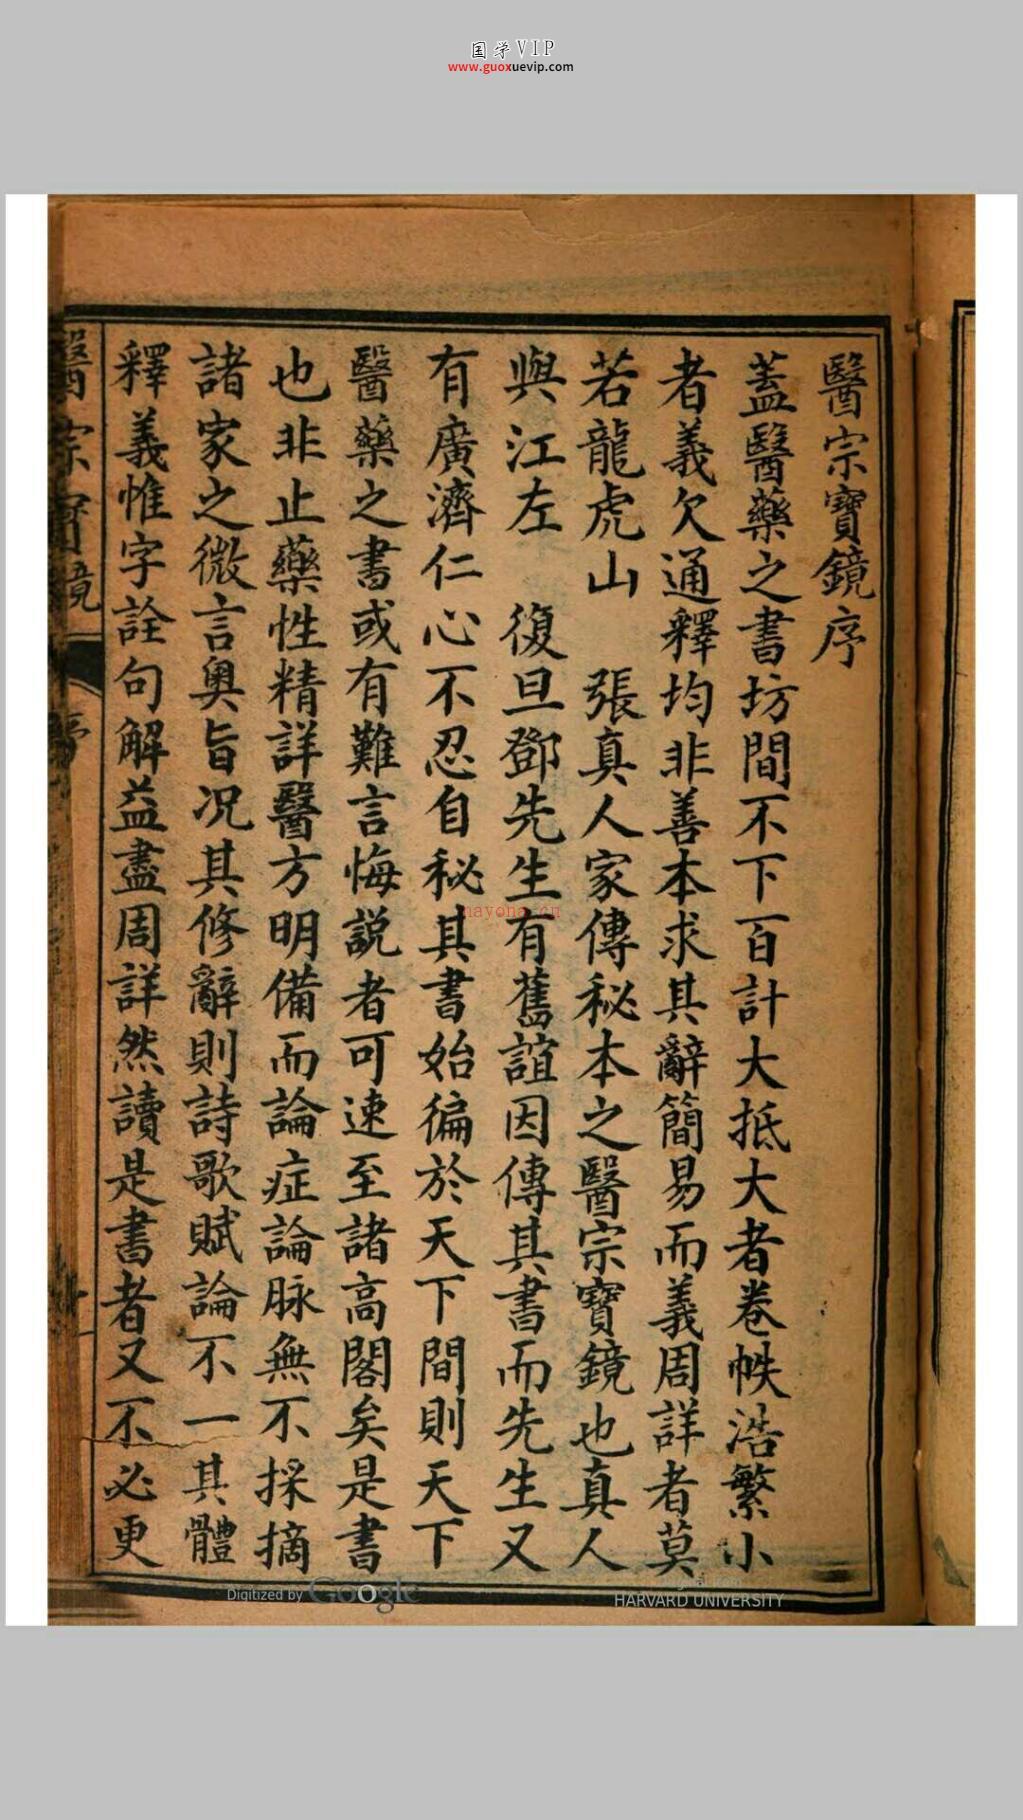 国学VIP
www.guoxuevip.com
醫宗寶鏡序
蓋醫藥之書坊間不下百計大抵大者卷帙浩繁小
者義欠通釋均非善本求其辭簡易而義周詳者莫
若龍虎山 張真人家傳秘本之醫宗寶鏡也真人
與江左 復旦鄧先生有舊誼因傳其書而先生又
有廣濟仁心不忍自秘其書始徧於天下間則天下
醫藥之書或有難言悔説者可速至諸高閣矣是書
也非止藥性精詳醫方明備而論症論脉無不採摘
諸家之微言奥旨况其修辭則詩歌賦論不一其體
釋義惟字詮句解益盡周詳然讀是書者又不必更
醫宗寶鏡
序
nayona.cn
Digitized by Google
HARVARD UNIVERSITY